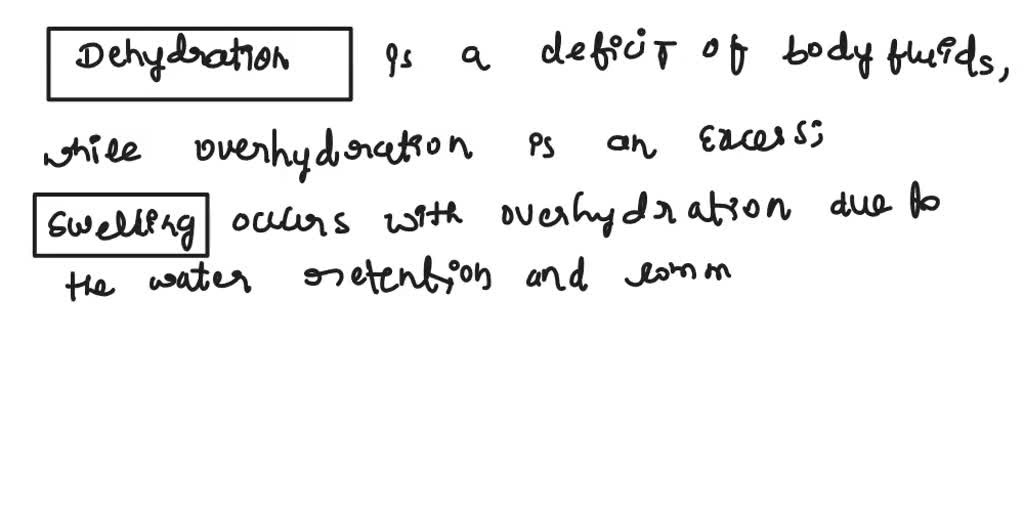 Dehydration is a deficit of body fluids,
while overhydration is an excess;
Swelling occurs with overhydration due to
the water retention and comm